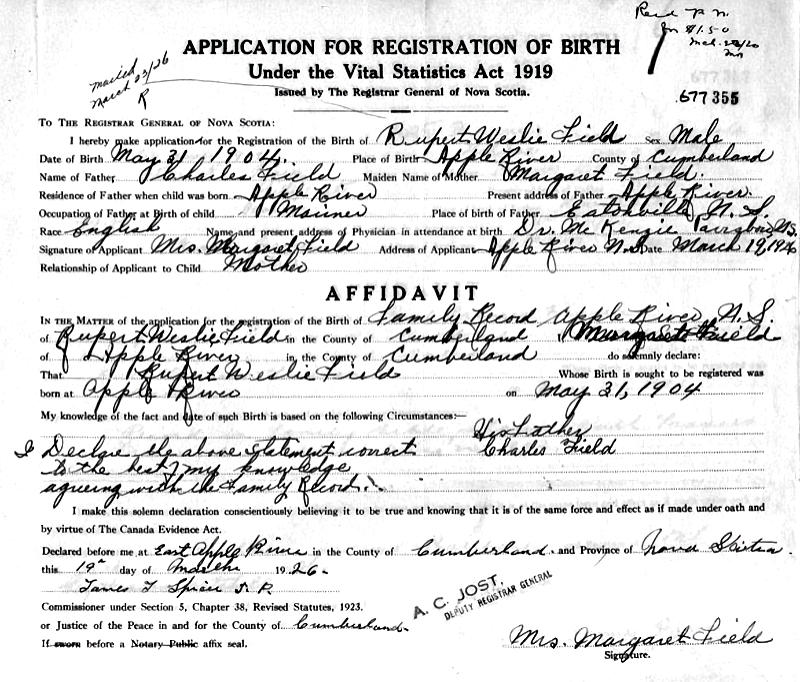 Recd P.N.
for $1.50
APPLICATION FOR REGISTRATION OF BIRTH
Under the Vital Statistics Act 1919
Issued by The Registrar General of Nova Scotia.
mailed
March 23/26
R
677355
TO THE REGISTRAR GENERAL OF NOVA SCOTIA:
I hereby make application for the Registration of the Birth of Rupert Weslie Field sex Male
Date of Birth May 31 1904. Place of Birth Apple River County of Cumberland
Name of Father Charles Field Maiden Name of Mother Margaret Field.
Residence of Father when child was born Apple River Present address of Father Apple River.
Occupation of Father at Birth of child Mariner Place of birth of Father Eatonville, N.S.
Race English Name and present address of Physician in attendance at birth Dr. McKenzie Parrsboro, N.S.
Signature of Applicant Mrs. Margaret Field Address of Applicant Apple River N.S. Date March 19, 1926
Relationship of Applicant to Child Mother
AFFIDAVIT
IN THE MATTER of the application for the registration of the Birth of Family Record Apple River, N.S.
of Rupert Weslie Field in the County of Cumberland Margaret Field
of Apple River in the County of Cumberland do solemnly declare:
That Rupert Weslie Field Whose Birth is sought to be registered was
born at Apple River on May 31, 1904
My knowledge of the fact and date of such Birth is based on the following Circumstances:—
His Father
I Declare the above statement correct Charles Field
to the best of my knowledge
agreeing with the Family Record.
I make this solemn declaration conscientiously believing it to be true and knowing that it is of the same force and effect as if made under oath and
by virtue of The Canada Evidence Act.
Declared before me at East Apple River in the County of Cumberland. and Province of Nova Scotia.
this 19th day of March 1926.
James T Spicer J.P.
Commissioner under Section 5, Chapter 38, Revised Statutes, 1923.
or Justice of the Peace in and for the County of Cumberland.
If sworn before a Notary Public affix seal.
A. C. JOST,
DEPUTY REGISTRAR GENERAL
Mrs. Margaret Field
Signature.